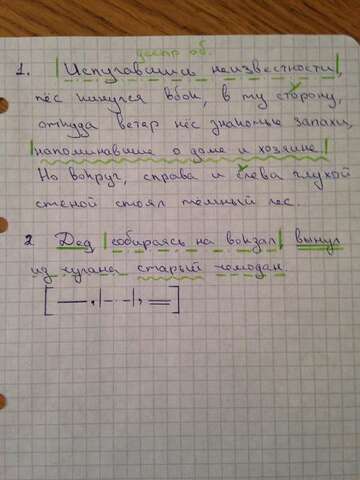 деепр об.
1. Испугавшись неизвестности,
пёс кинулся вбок, в ту сторону,
откуда ветер нёс знакомые запахи,
напоминавшие о доме и хозяине.
Но вокруг, справа и слева глухой
стеной стоял тёмный лес.
2 Дед, собираясь на вокзал, вынул
из чулана старый чемодан.